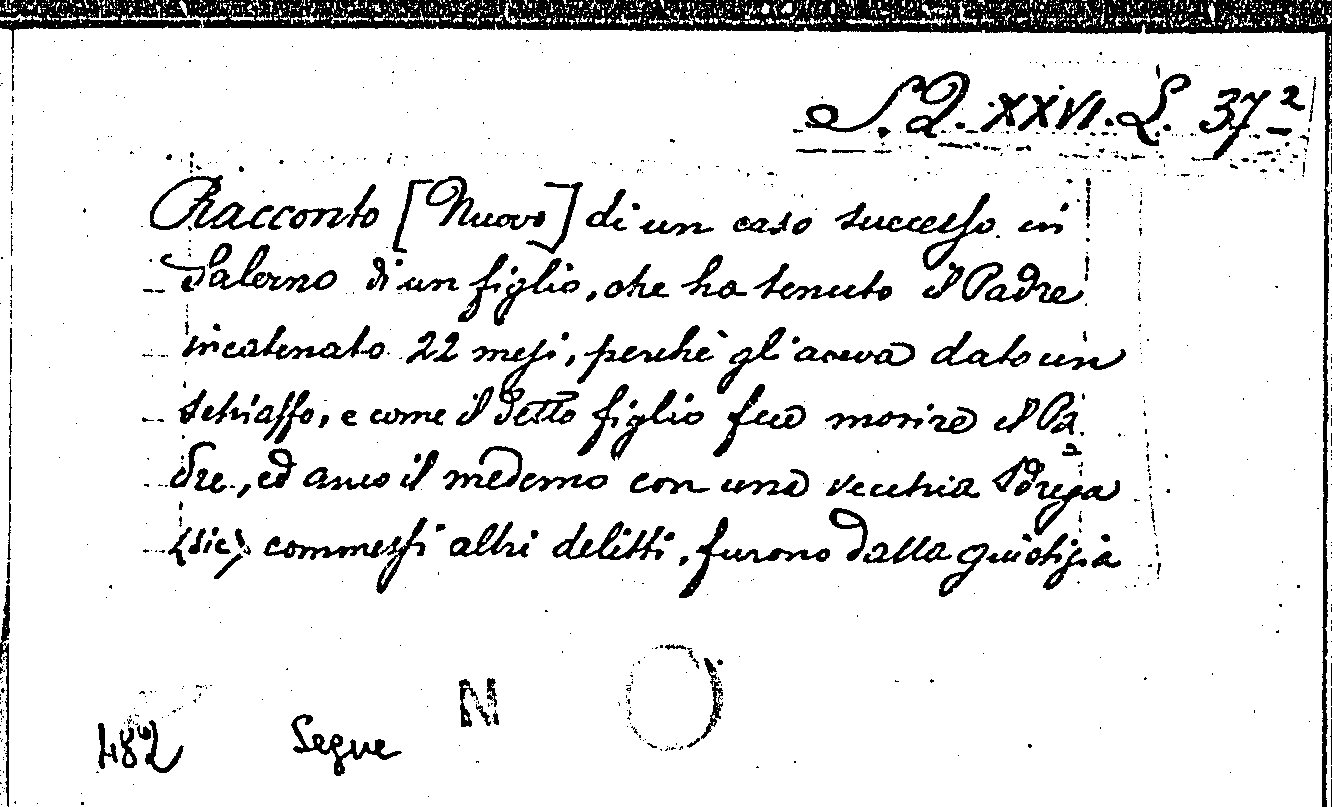 S. Q. XXVI. L. 37²
Racconto [Nuovo] di un caso successo in
Salerno di un figlio, che ha tenuto il Padre
incatenato 22 mesi, perchè gli aveva dato un
schiaffo, e come il detto figlio fece morire il Pa
dre, ed anco il medemo con una vecchia Strega
(sic) commessi altri delitti, furono dalla giustizia
482 Segue N